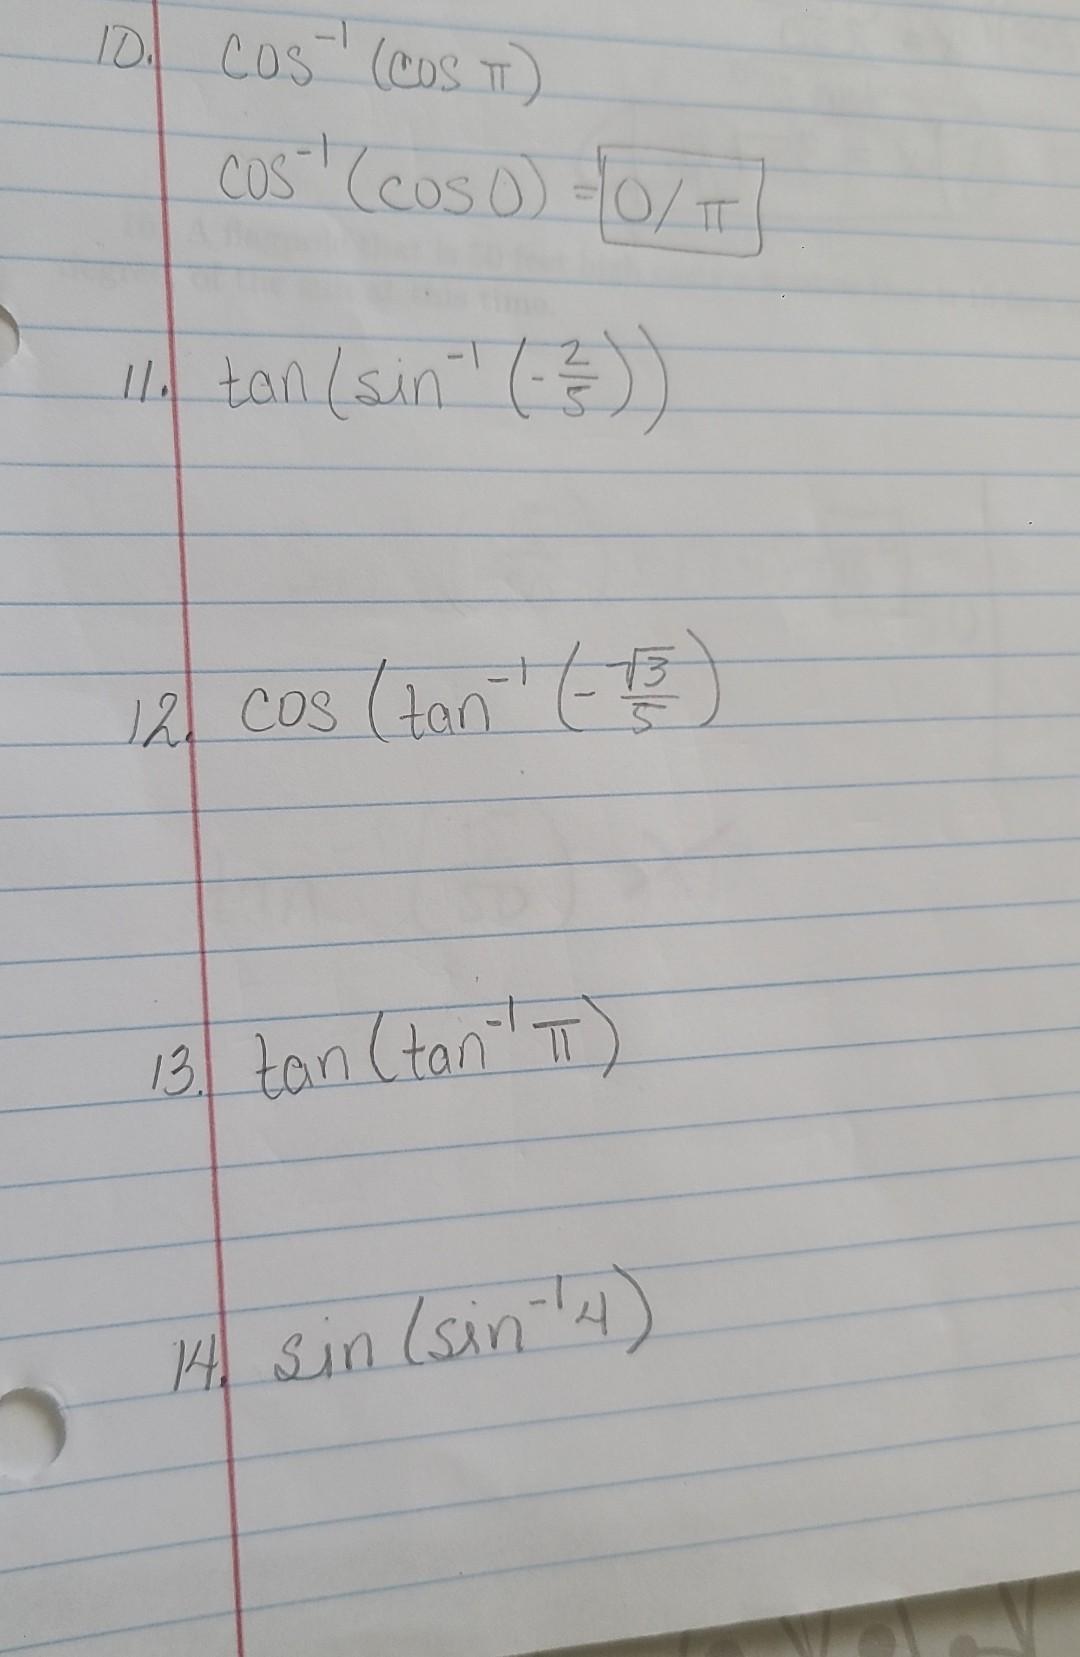 10. cos⁻¹ (cos π)
cos⁻¹ (cos 0) = 0/π
11. tan (sin⁻¹ (-2/5))
12. cos (tan⁻¹ (-√3/5)
13. tan (tan⁻¹ π)
14. sin (sin⁻¹ 4)